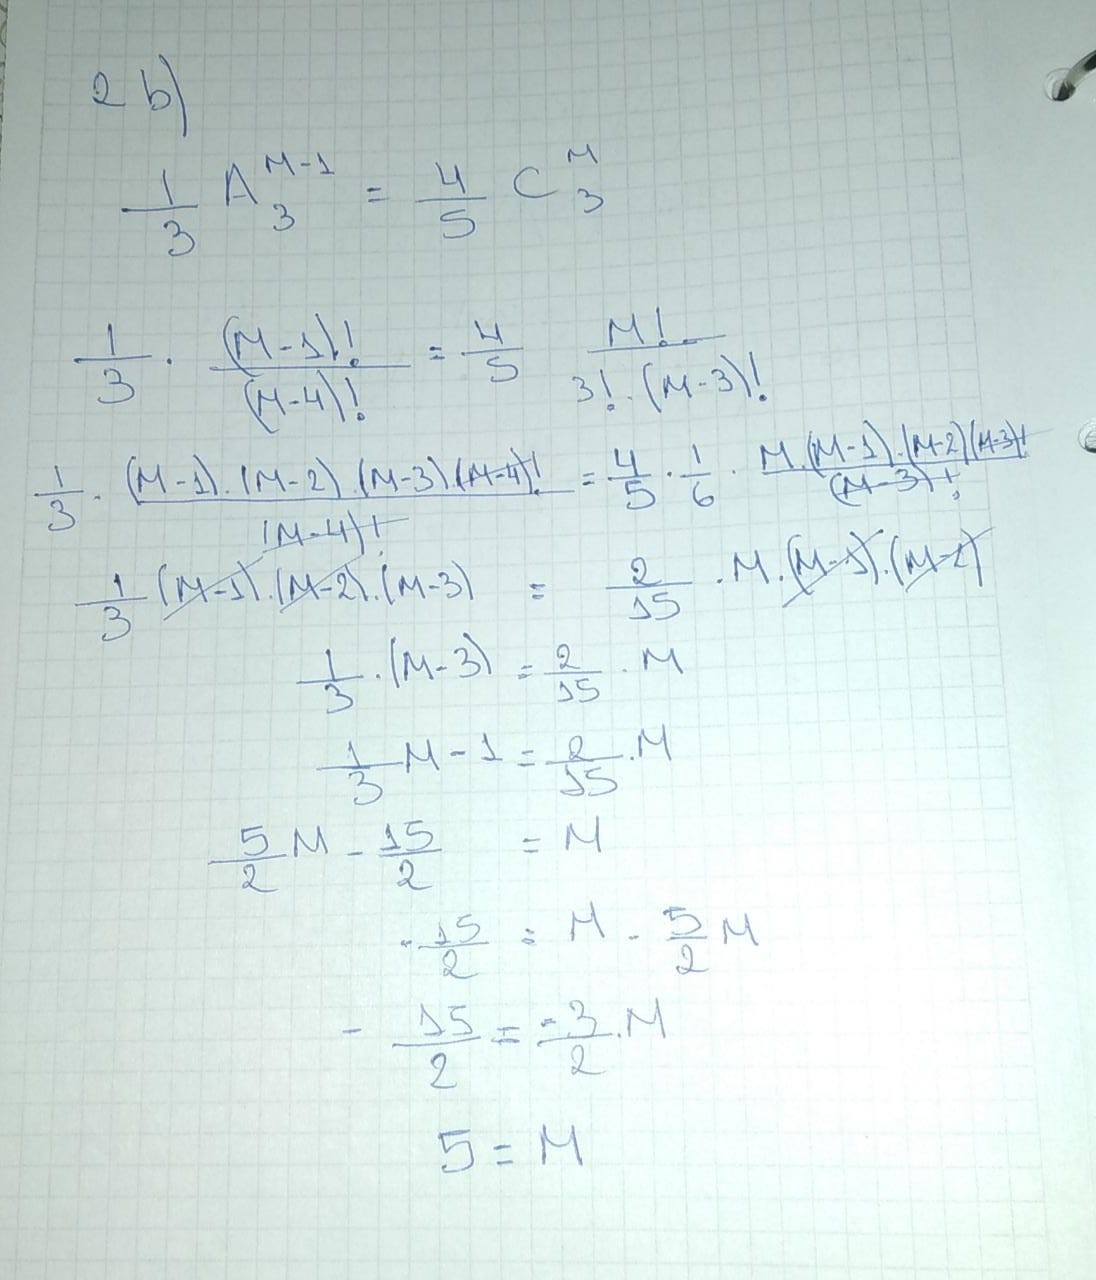 2 b)
1/3 A₃^(M-1) = 4/5 C₃^M
1/3 · (M-1)!/(M-4)! = 4/5 M!/(3! · (M-3)!)
1/3 · (M-1)·(M-2)·(M-3)·(M-4)!/(M-4)! = 4/5 · 1/6 · M·(M-1)·(M-2)(M-3)!/(M-3)!
1/3 (M-1)·(M-2)·(M-3) = 2/15 · M·(M-1)·(M-2)
1/3 · (M-3) = 2/15 · M
1/3 M - 1 = 2/15 · M
5/2 M - 15/2 = M
- 15/2 = M - 5/2 M
- 15/2 = -3/2 · M
5 = M